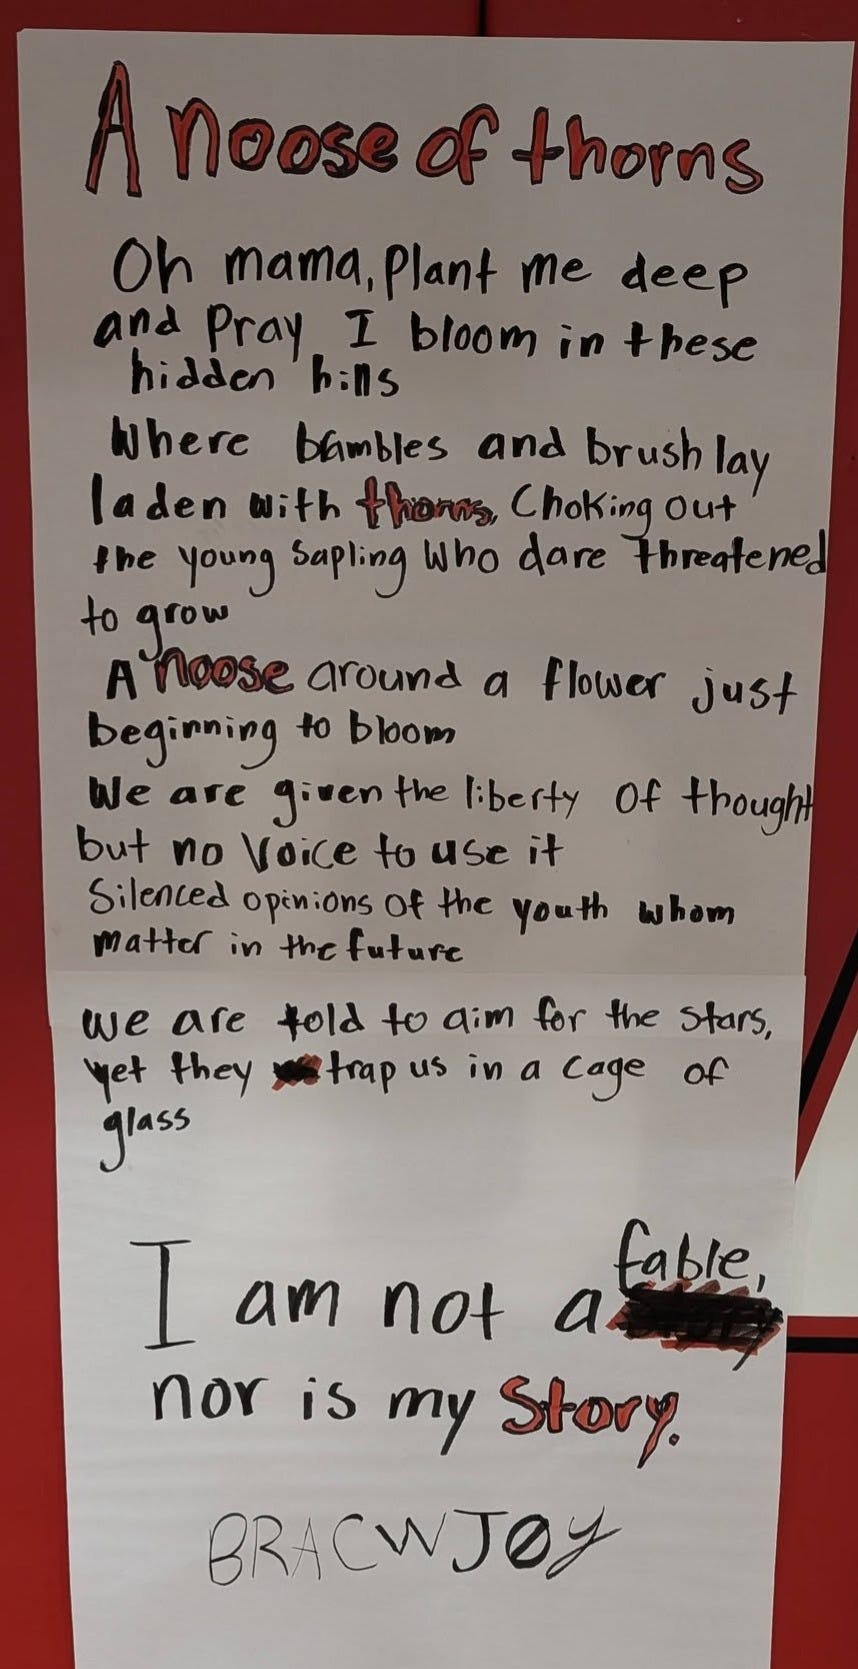 A noose of thorns
Oh mama, Plant me deep
and Pray I bloom in these
hidden hills
Where bambles and brush lay
laden with thorns, Choking out
the young Sapling Who dare threatened
to grow
A noose around a flower just
beginning to bloom
We are given the liberty of thought
but no Voice to use it
Silenced opinions of the youth whom
matter in the future
we are told to aim for the stars,
yet they trap us in a cage of
glass
I am not a fable,
nor is my Story.
BRACWJØY